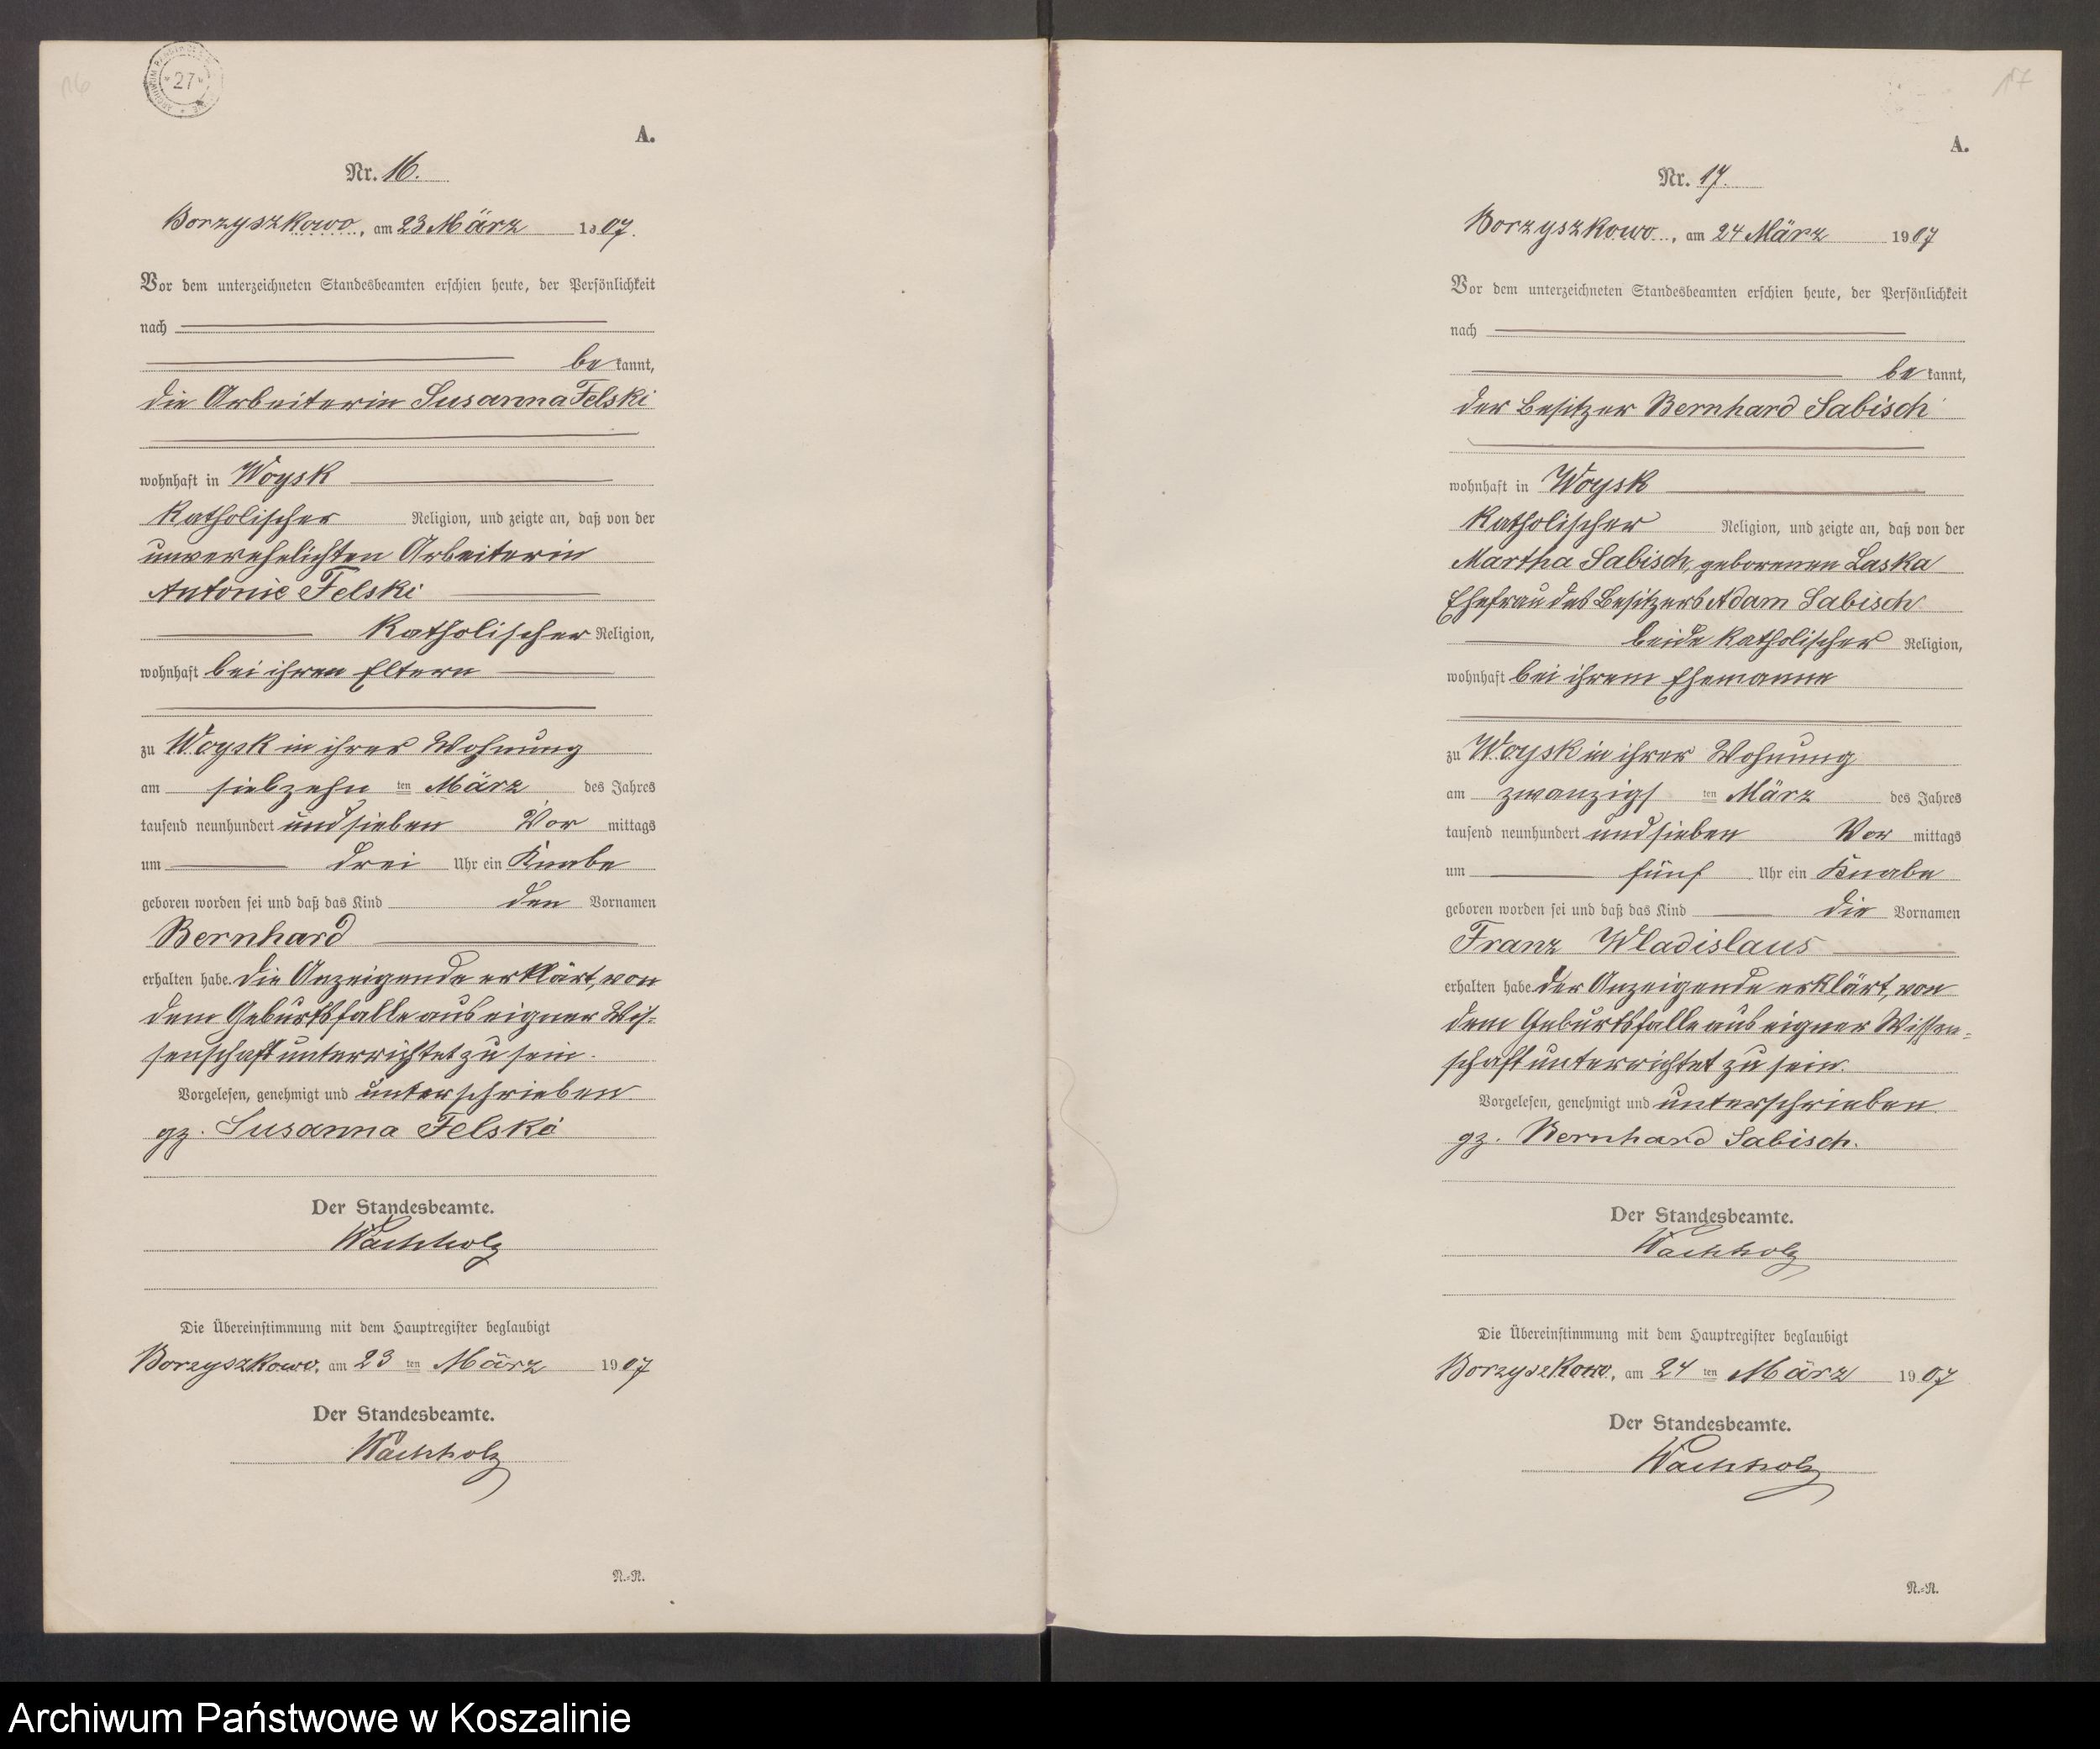 16
27
A.
Nr. 16.
Borzyszkowo, am 23 März 1907.
Vor dem unterzeichneten Standesbeamten erschien heute, der Persönlichkeit
nach
be kannt,
die Arbeiterin Susanna Felski
wohnhaft in Woysk
katholischer Religion, und zeigte an, daß von der
unverehelichten Arbeiterin
Antonie Felski
katholischer Religion,
wohnhaft bei ihren Eltern
zu Woysk in ihrer Wohnung
am siebzehn ten März des Jahres
tausend neunhundert und sieben Vor mittags
um drei Uhr ein Knabe
geboren worden sei und daß das Kind den Vornamen
Bernhard
erhalten habe. Die Anzeigende erklärt, von
dem Geburtsfalle aus eigner Wis-
senschaft unterrichtet zu sein.
Vorgelesen, genehmigt und unterschrieben
gz. Susanna Felski
Der Standesbeamte.
Wachholz
Die Übereinstimmung mit dem Hauptregister beglaubigt
Borzyszkowo, am 23 ten März 1907
Der Standesbeamte.
Wachholz
N.-N.
17
A.
Nr. 17.
Borzyszkowo, am 24 März 1907
Vor dem unterzeichneten Standesbeamten erschien heute, der Persönlichkeit
nach
be kannt,
der Besitzer Bernhard Sabisch
wohnhaft in Woysk
katholischer Religion, und zeigte an, daß von der
Martha Sabisch, geborenen Laska
Ehefrau des Besitzers Adam Sabisch
beide katholischer Religion,
wohnhaft bei ihrem Ehemanne
zu Woysk in ihrer Wohnung
am zwanzigs ten März des Jahres
tausend neunhundert und sieben Vor mittags
um fünf Uhr ein Knabe
geboren worden sei und daß das Kind die Vornamen
Franz Wladislaus
erhalten habe. Der Anzeigende erklärt, von
dem Geburtsfalle aus eigner Wissen-
schaft unterrichtet zu sein.
Vorgelesen, genehmigt und unterschrieben
gz. Bernhard Sabisch.
Der Standesbeamte.
Wachholz
Die Übereinstimmung mit dem Hauptregister beglaubigt
Borzyszkowo, am 24 ten März 1907
Der Standesbeamte.
Wachholz
N.-N.
Archiwum Państwowe w Koszalinie